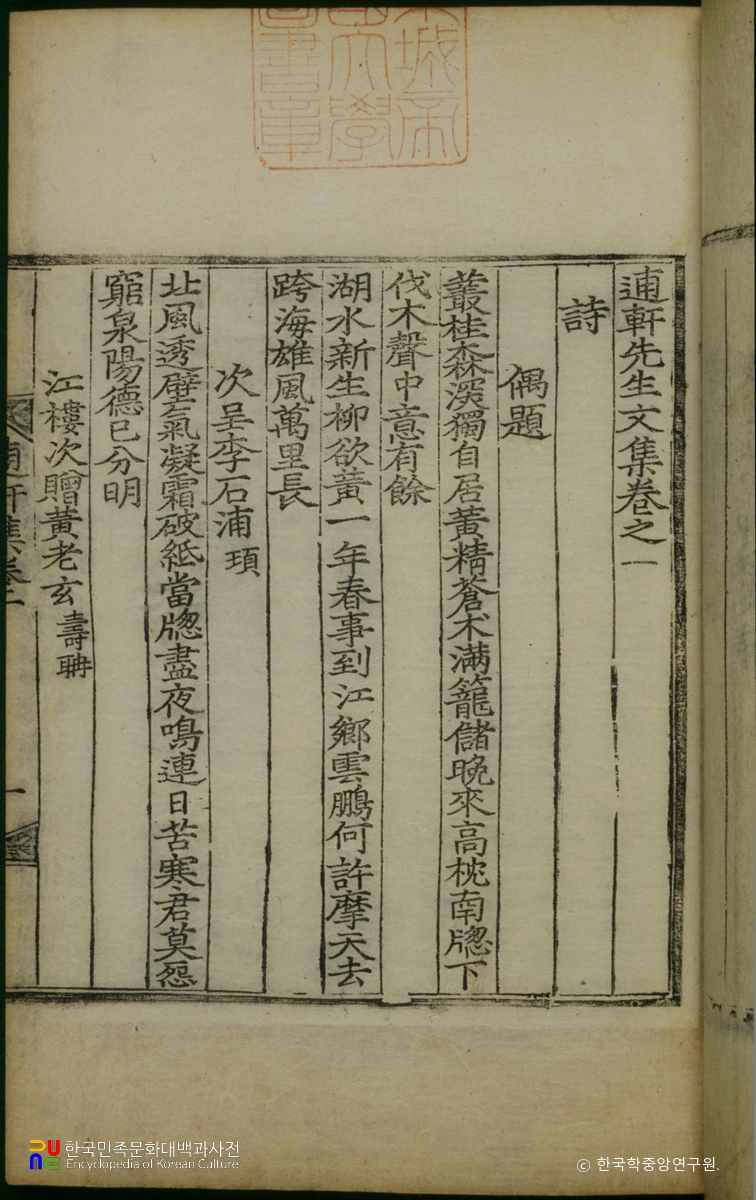 逋軒先生文集卷之一
詩
偶題
叢桂森深獨自居黃精蒼朮滿籠儲晚來高枕南牕下
伐木聲中意有餘
湖水新生柳欲黃一年春事到江鄉雲鵬何許摩天去
跨海雄風萬里長
次呈李石浦 頊
北風透壁氣凝霜破紙當牕盡夜鳴連日苦寒君莫怨
窮泉陽德已分明
江樓次贈黃老玄 壽聃
한국민족문화대백과사전
Encyclopedia of Korean Culture
ⓒ 한국학중앙연구원.